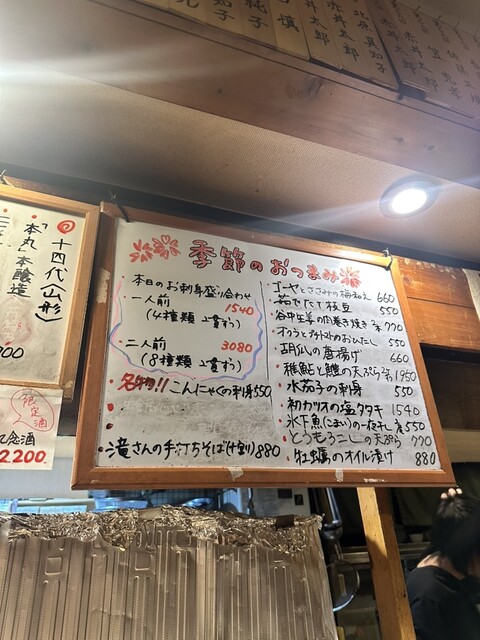 純子
慎
井太郎
赤井太郎
北原真知子
赤井太郎
十四代(山形)
「本丸」本醸造
限定酒
2200
季節のおつまみ
・本日のお刺身盛り合わせ
・一人前 1540
(4種類 2貫ずつ)
・二人前 3080
(8種類 2貫ずつ)
・名物!!こんにゃくの刺身550
・滝さんの手打ちそば(十割)880
・ゴーヤとささみの梅和え 660
・茹でたて枝豆 550
・谷中生姜の肉巻き焼き 2本 770
・オクラとプチトマトのおひたし 550
・胡瓜の唐揚げ 660
・稚鮎と鱧の天ぷら 1950
・水茄子の刺身 550
・初カツオの塩タタキ 1540
・氷下魚(こまい)の一夜干し 550
・とうもろこしの天ぷら 770
・牡蠣のオイル漬け 880